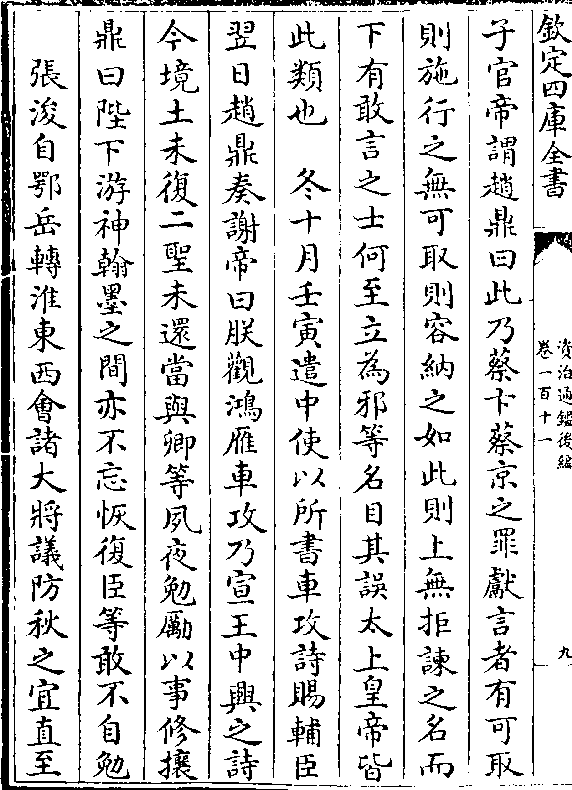 欽定四庫全書
資治通鑑後編
卷一百十一
九
子官帝謂趙鼎曰此乃蔡卞蔡京之罪獻言者有可取
則施行之無可取則容納之如此則上無拒諫之名而
下有敢言之士何至立為邪等名目其誤太上皇帝皆
此類也　冬十月壬寅遣中使以所書車攻詩賜輔臣
翌日趙鼎奏謝帝曰朕觀鴻雁車攻乃宣王中興之詩
今境土未復二聖未還當與卿等夙夜勉厲以事修攘
鼎曰陛下游神翰墨之間亦不忘恢復臣等敢不自勉
張浚自鄂岳轉淮東西會諸大將議防秋之宜直至